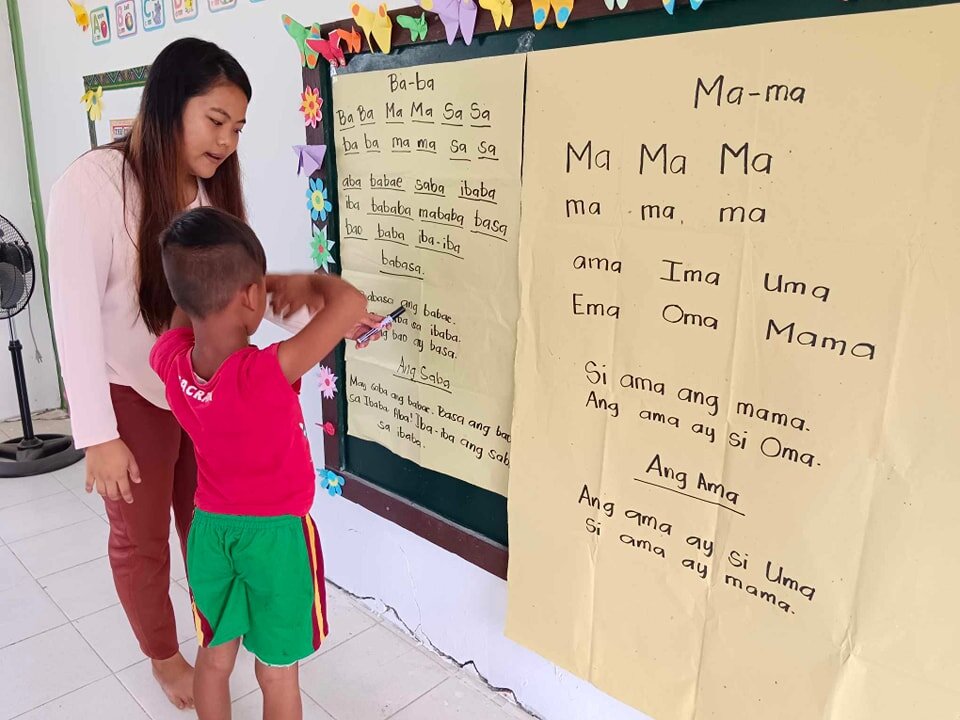 Ba-ba
Ba Ba Ma Ma Sa Sa
ba ba ma ma sa sa
aba babae saba ibaba
iba bababa mababa basa
bao baba iba-iba
babasa.
ang babae.
sa ibaba.
bao ay basa.
Ang Saba
May saba ang babae. Basa ang bao
sa Ibaba. Aba! Iba-iba ang sab
sa ibaba.
Ma-ma
Ma Ma Ma
ma ma. ma
ama Ima Uma
Ema Oma Mama
Si ama ang mama.
Ang ama ay si Oma.
Ang Ama
Ang ama ay si Uma
Si ama ay mama.